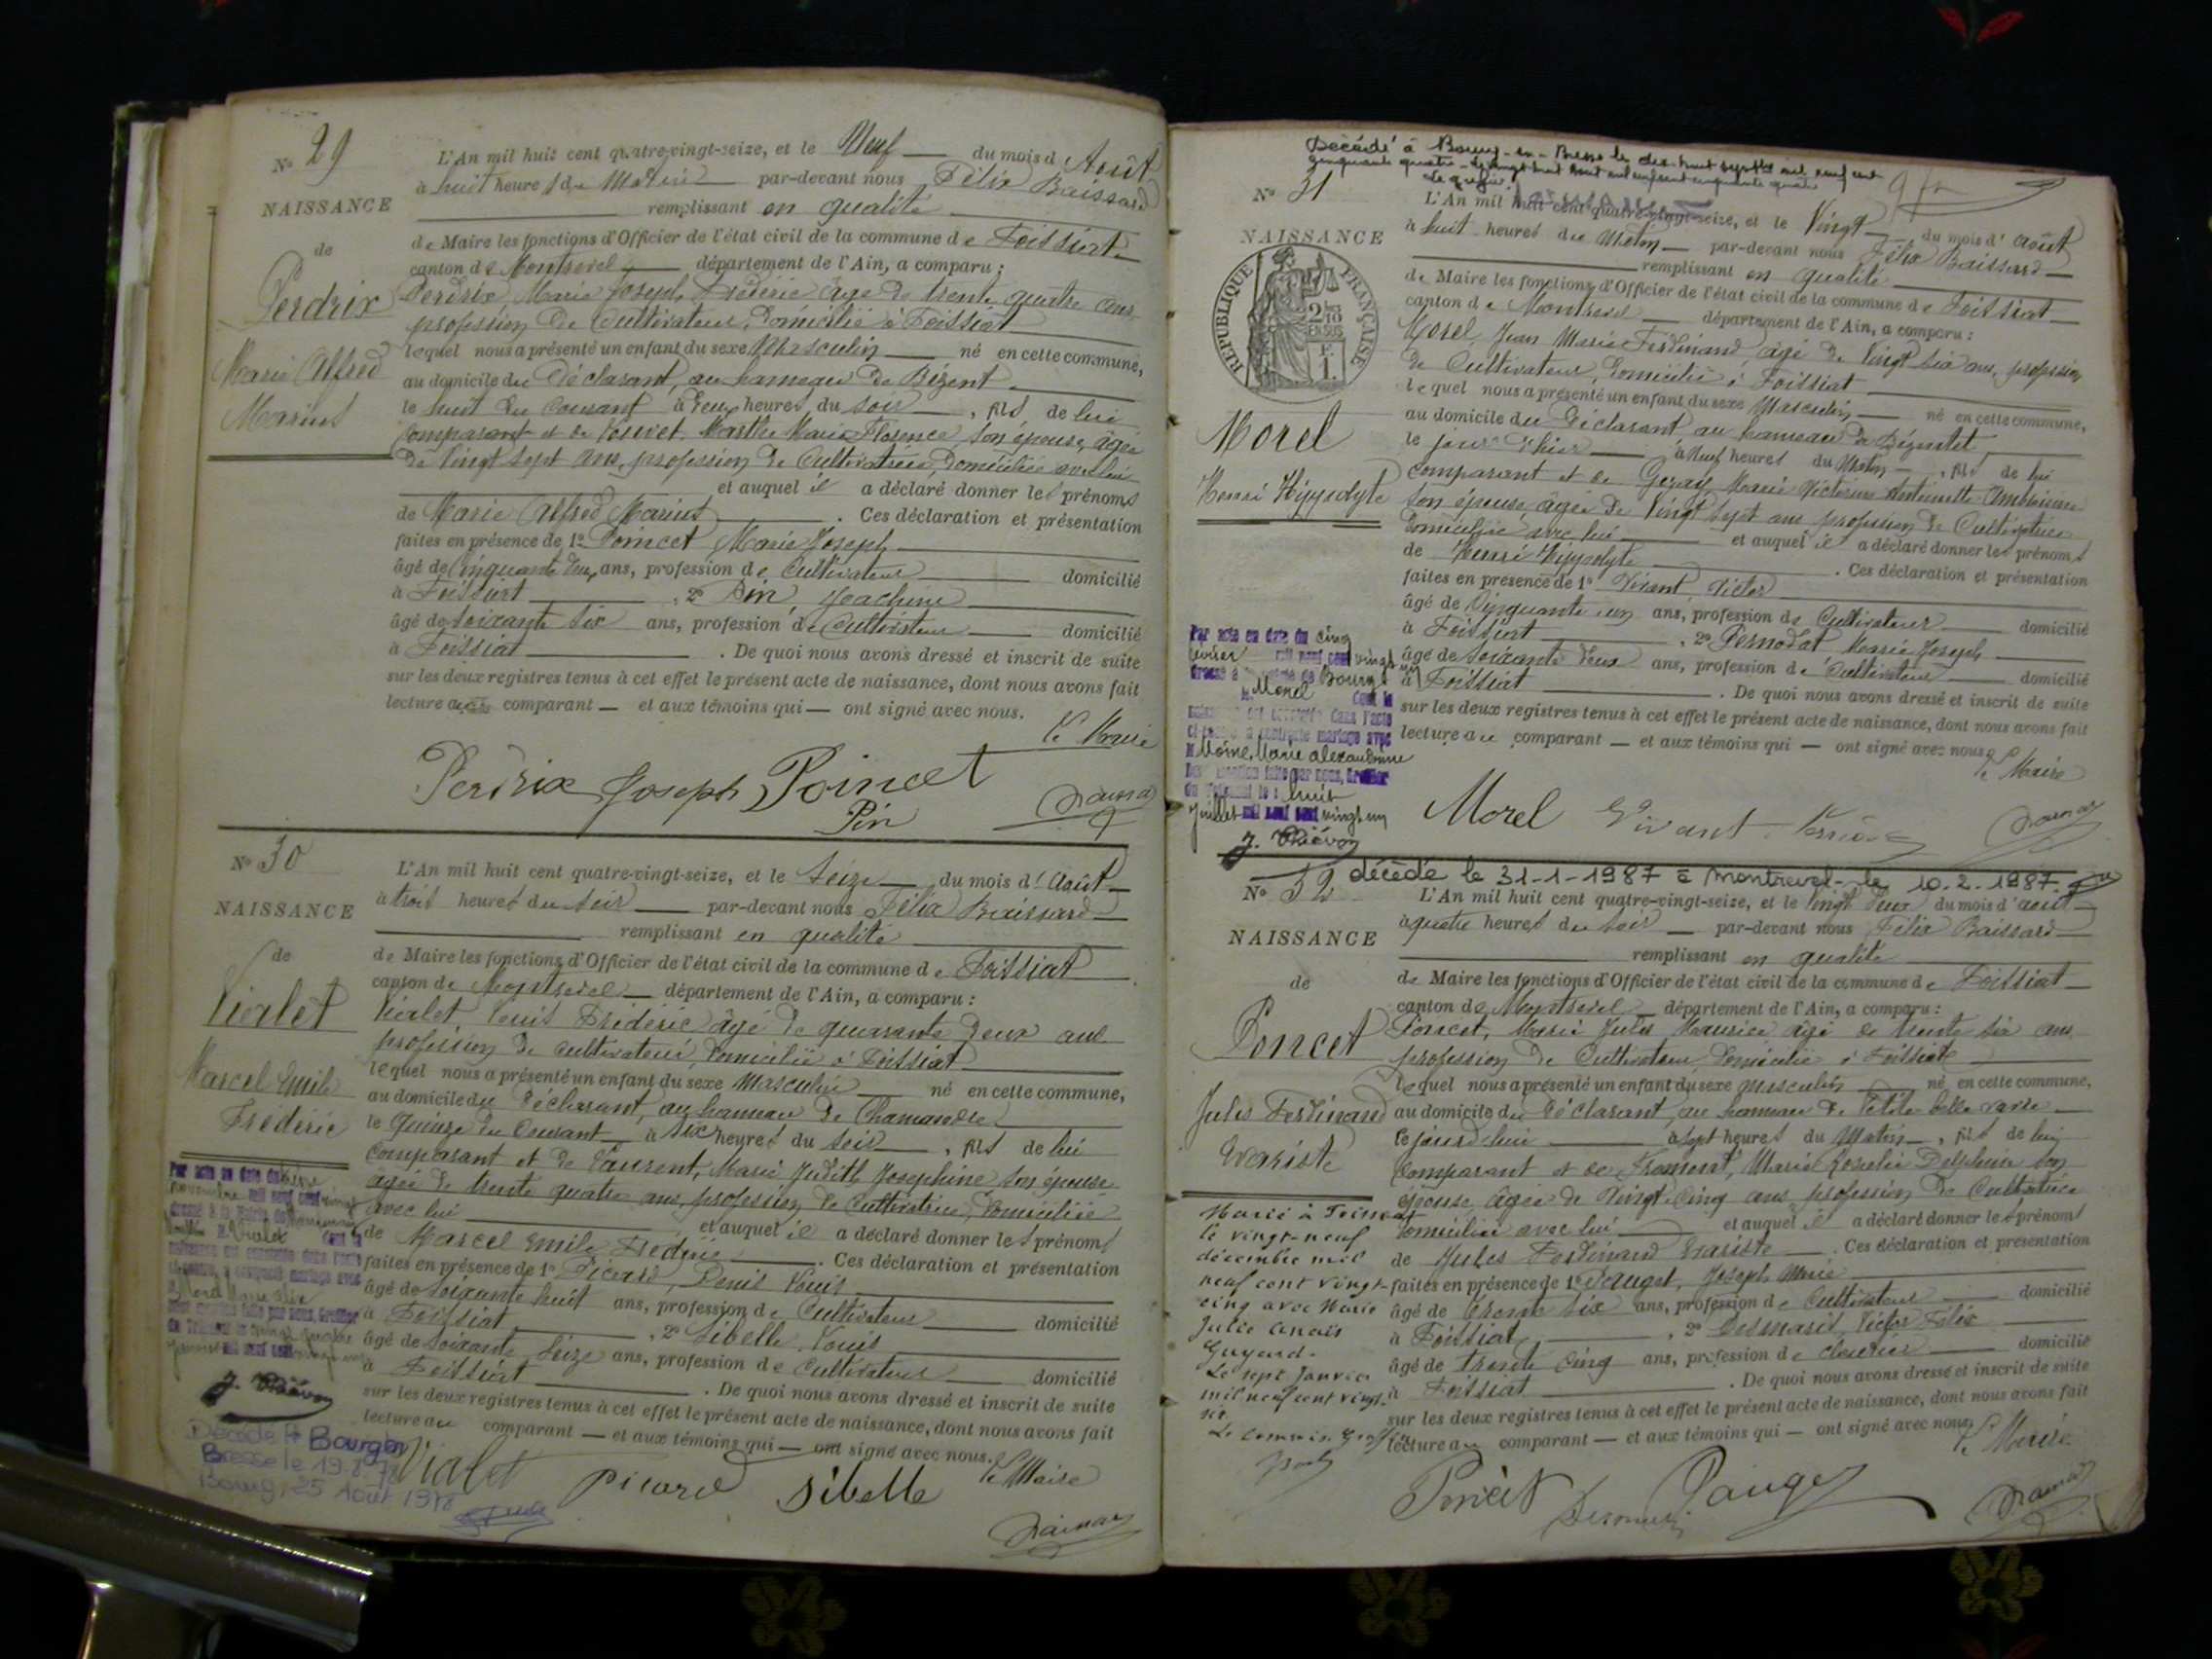 N° 29
NAISSANCE
de
Perdrix
Marie Alfred
Marius
L'An mil huit cent quatre-vingt-seize, et le Neuf du mois d Août
à huit heures du Matin par-devant nous Félix Baissard
remplissant en qualité
de Maire les fonctions d'Officier de l'état civil de la commune de Foissiat
canton de Montrevel département de l'Ain, a comparu :
Perdrix Marie Joseph Frédéric âgé de trente quatre ans
profession de Cultivateur, domicilié à Foissiat
lequel nous a présenté un enfant du sexe Masculin né en cette commune,
au domicile du Déclarant, au hameau de Bézent
le huit du Courant à deux heures du soir, fils de lui
comparant et de Marthe Marie Florence son épouse, âgée
de Vingt sept ans, profession de Cultivatrice, domiciliée avec lui
et auquel il a déclaré donner les prénoms
de Marie Alfred Marius . Ces déclaration et présentation
faites en présence de 1° Poincet Marie Joseph
âgé de Cinquante deux ans, profession de Cultivateur domicilié
à Foissiat, 2° Pin Joachim
âgé de soixante six ans, profession de Cultivateur domicilié
à Foissiat . De quoi nous avons dressé et inscrit de suite
sur les deux registres tenus à cet effet le présent acte de naissance, dont nous avons fait
lecture au comparant — et aux témoins qui — ont signé avec nous.
Le Maire
Perdrix Joseph Poincet
Pin
N° 30
NAISSANCE
de
Vialet
Marcel Emile
Frédéric
L'An mil huit cent quatre-vingt-seize, et le Seize du mois d'Août
à trois heures du soir par-devant nous Félix Baissard
remplissant en qualité
de Maire les fonctions d'Officier de l'état civil de la commune de Foissiat
canton de Montrevel département de l'Ain, a comparu :
Vialet Louis Frédéric âgé de quarante deux ans
profession de cultivateur domicilié à Foissiat
lequel nous a présenté un enfant du sexe Masculin né en cette commune,
au domicile du Déclarant, au hameau de Chamandre
le Quinze du Courant à six heures du soir, fils de lui
comparant et de Laurent, Marie Judith Joséphine son épouse
âgée de trente quatre ans, profession de Cultivatrice, domiciliée
avec lui et auquel il a déclaré donner les prénoms
de Marcel Emile Frédéric . Ces déclaration et présentation
faites en présence de 1° Picard, Denis Louis
âgé de Soixante huit ans, profession de Cultivateur domicilié
à Foissiat, 2° Sibelle Louis
âgé de Soixante Seize ans, profession de Cultivateur domicilié
à Foissiat . De quoi nous avons dressé et inscrit de suite
sur les deux registres tenus à cet effet le présent acte de naissance, dont nous avons fait
lecture au comparant — et aux témoins qui — ont signé avec nous.
Le Maire
Décédé à Bourg en
Bresse le 19.8.78
Bourg, 25 Août 1978
Vialet Picard Sibelle
Décédé à Bourg-en-Bresse le dix-huit mil neuf cent
cinquante quatre
Le greffier
N° 31
NAISSANCE
RÉPUBLIQUE FRANÇAISE
Morel
Henri Hippolyte
L'An mil huit cent quatre-vingt-seize, et le Vingt du mois d'Août
à huit heures du Matin par-devant nous Félix Baissard
remplissant en qualité
de Maire les fonctions d'Officier de l'état civil de la commune de Foissiat
canton de Montrevel département de l'Ain, a comparu :
Morel Jean Marie Ferdinand, âgé de Vingt six ans, profession
de Cultivateur, domicilié à Foissiat
lequel nous a présenté un enfant du sexe Masculin né en cette commune,
au domicile du Déclarant au hameau de
le jour d'hier à neuf heures du Matin, fils de lui
comparant et de Marie Victorine Antoinette
son épouse âgée de Vingt Sept ans profession de Cultivatrice
domiciliée avec lui et auquel il a déclaré donner les prénoms
de Henri Hippolyte . Ces déclaration et présentation
faites en présence de 1° Vivant Victor
âgé de Cinquante un ans, profession de Cultivateur domicilié
à Foissiat, 2° Pernodat Marie Joseph
âgé de soixante deux ans, profession de Cultivateur domicilié
à Foissiat . De quoi nous avons dressé et inscrit de suite
sur les deux registres tenus à cet effet le présent acte de naissance, dont nous avons fait
lecture au comparant — et aux témoins qui — ont signé avec nous.
Le Maire
Par acte en date du cinq
mil neuf cent vingt un
Bourg
Morel
contracté mariage avec
Moine, Marie Alexandrine
huit
Juillet mil neuf cent vingt un
Morel Vivant
N° 32
décédé le 31-1-1987 à Montrevel - le 10.2.1987
NAISSANCE
de
Poncet
Jules Ferdinand
Evariste
L'An mil huit cent quatre-vingt-seize, et le Vingt deux du mois d'août
à quatre heures du soir par-devant nous Félix Baissard
remplissant en qualité
de Maire les fonctions d'Officier de l'état civil de la commune de Foissiat
canton de Montrevel département de l'Ain, a comparu :
Poncet, Marie Jules Maurice âgé de trente six ans
profession de Cultivateur domicilié à Foissiat
lequel nous a présenté un enfant du sexe masculin né en cette commune,
au domicile du Déclarant, au hameau de Petite
à sept heures du Matin, fils de lui
comparant et de Marie Rosalie Delphine son
épouse âgée de Vingt Cinq ans profession de Cultivatrice
domiciliée avec lui et auquel il a déclaré donner les prénoms
de Jules Ferdinand Evariste . Ces déclaration et présentation
faites en présence de 1° Pauget, Joseph Marie
âgé de trente six ans, profession de Cultivateur domicilié
à Foissiat, 2° Desmaris Victor Félix
âgé de trente cinq ans, profession de domicilié
à Foissiat . De quoi nous avons dressé et inscrit de suite
sur les deux registres tenus à cet effet le présent acte de naissance, dont nous avons fait
lecture au comparant — et aux témoins qui — ont signé avec nous.
Le Maire
Marié à Foissiat
le vingt-neuf
décembre mil
neuf cent vingt-
cinq avec Marie
Julie Anaïs
Guyard.
Le sept Janvier
mil neuf cent vingt-
six
Poncet Pauget